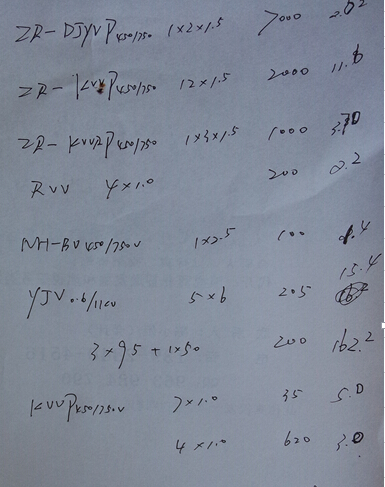 ZR-DJYVP450/750 1×2×1.5 7000 2.02
ZR-KVVP450/750 12×1.5 2000 11.8
ZR-KVVRP450/750 1×3×1.5 1000
RVV 4×1.0 200 2.2
NH-BV450/750V 1×2.5 100 1.4
15.4
YJV0.6/11KV 5×6 205
3×95+1×50 200 162.2
KVVP450/750V 7×1.0 35 5.0
4×1.0 620 3.0